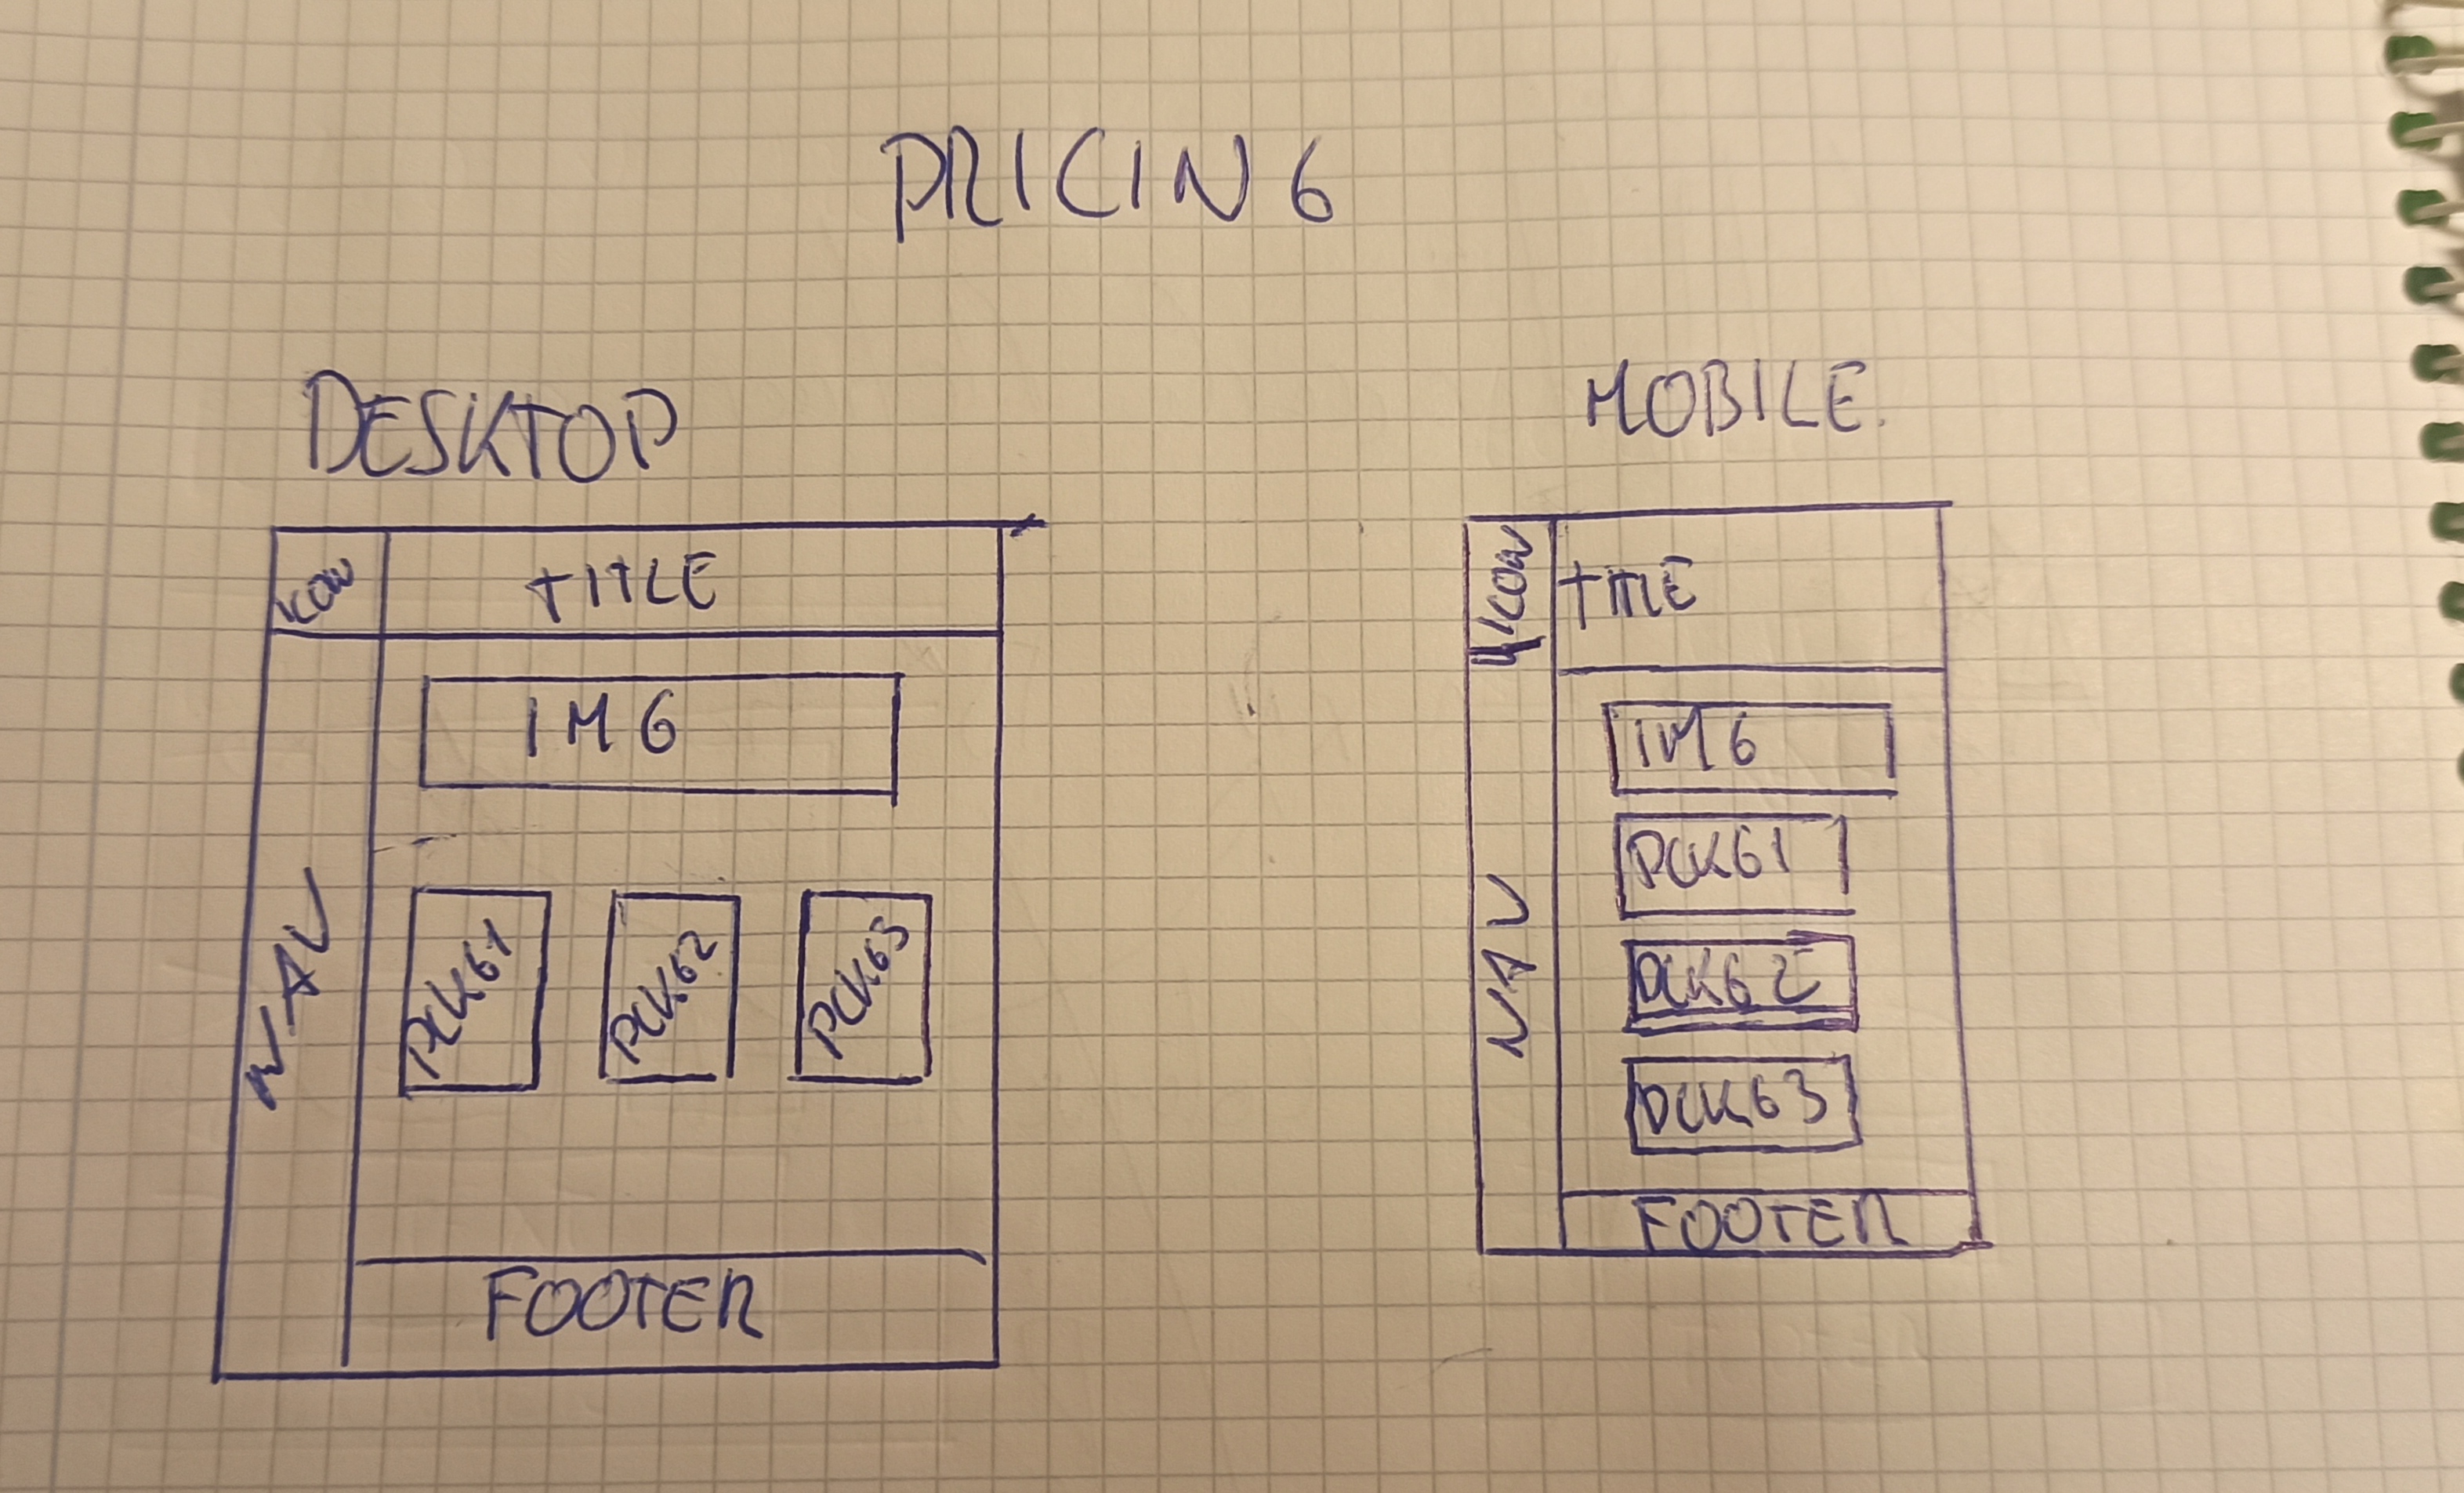 PRICING
DESKTOP
ICON
TITLE
IMG
NAV
PCKG1
PCKG2
PCKG3
FOOTER
MOBILE
ICON
TITLE
IMG
NAV
PCKG1
PCKG2
PCKG3
FOOTER